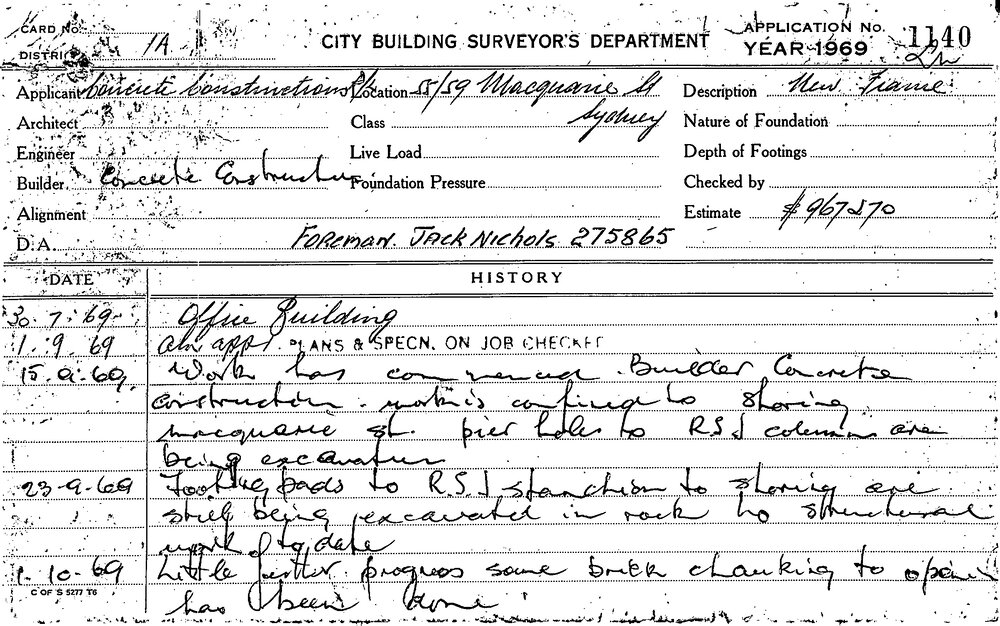 CARD No.
DISTRICT 1A
CITY BUILDING SURVEYOR'S DEPARTMENT
APPLICATION No. 1140
YEAR 1969
Applicant Concrete Constructions P/L
Location 55/59 Macquarie St
Sydney
Description New Frame
Architect
Class
Nature of Foundation
Engineer
Live Load
Depth of Footings
Builder Concrete Construction
Foundation Pressure
Checked by
Alignment
Estimate $967270
D.A.
FOREMAN. JACK NICHOLS 275865
DATE HISTORY
30.7.69 Office Building
1.9.69 PLANS & SPECN. ON JOB CHECKED
15.9.69 Work has commenced. Builder Concrete
Construction. work is confined to shoring
Macquarie St. pier holes to R.S.J columns are
being excavated
23-9-69 Footing pads to R.S.J stanchion to shoring are
still being excavated in rock no structural
work to date
1-10-69 Little further progress some brick chauking to
has been done
C OF S 5277 T6